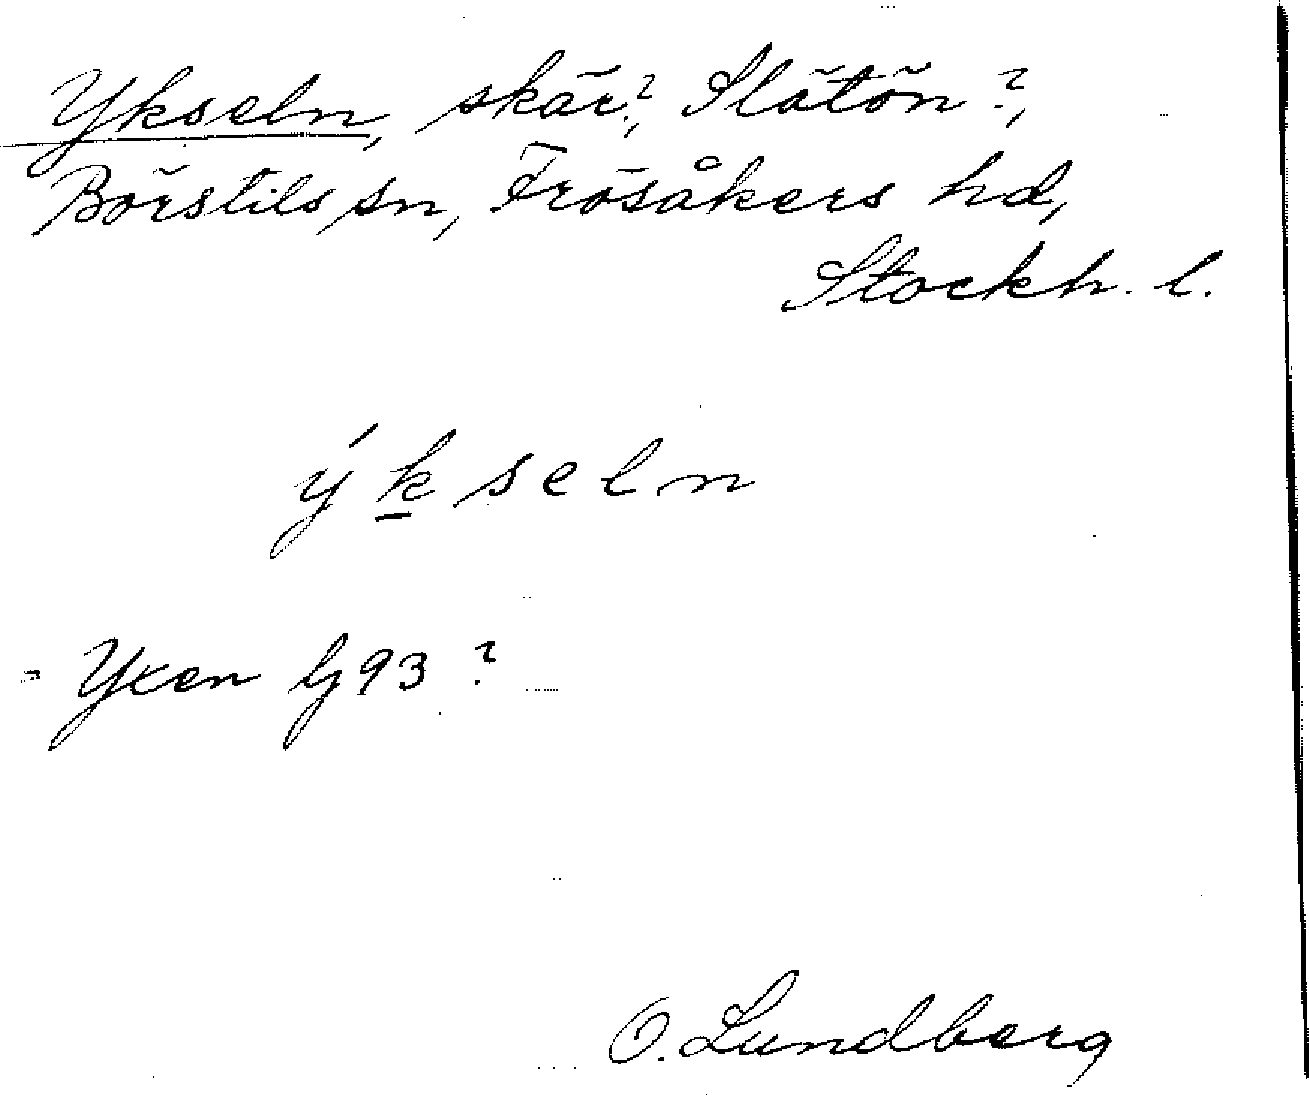 Ykseln, skär?, Slätön?,
Börstils sn, Frösåkers hd,
Stockh. l.
ýkseln
= Yxen Gj 93 ?
O. Lundberg